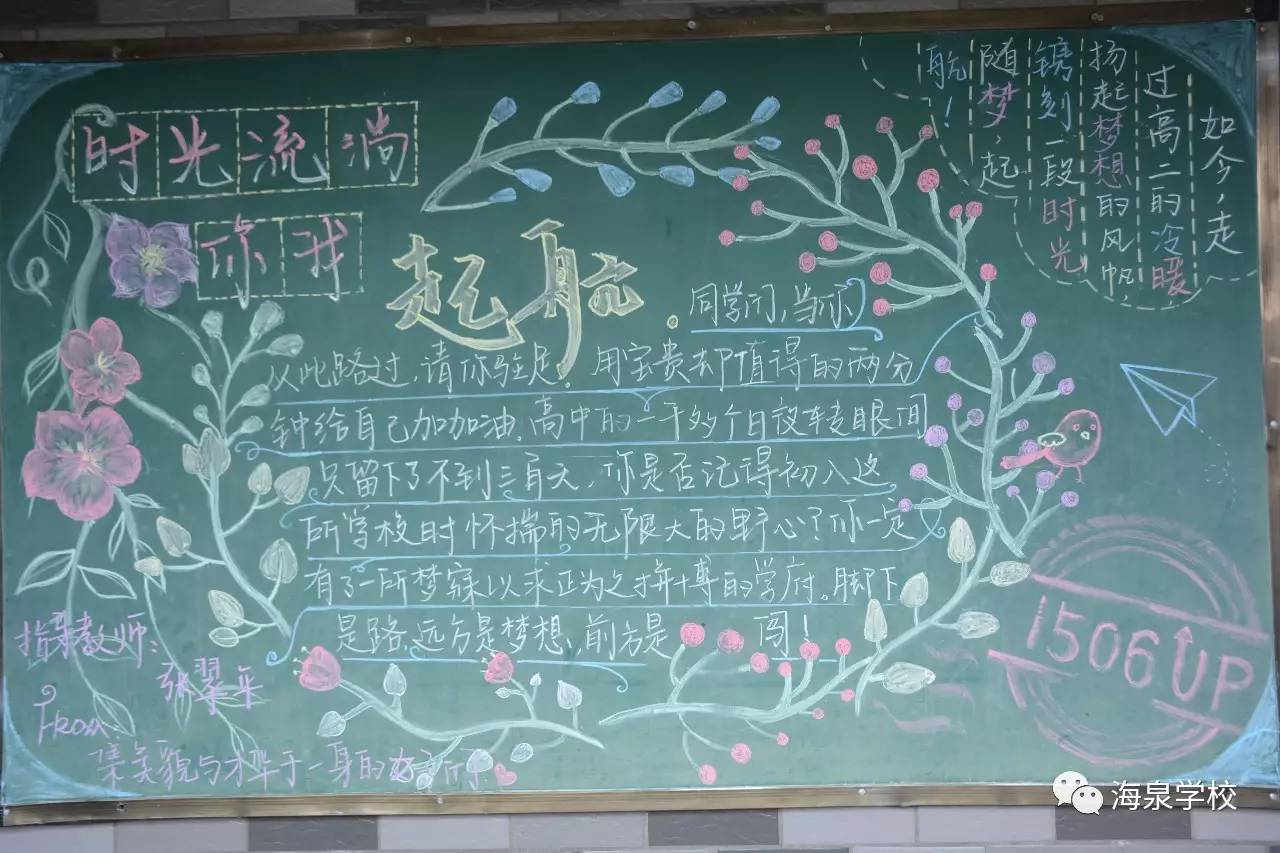 时光流淌
你我
起航
如今,走
过高二的冷暖
扬起梦想的风帆,
镌刻一段时光
随梦,起
航!
同学们,当你
从此路过,请你驻足。用宝贵却值得的两分
钟给自己加加油。高中的一千多个日夜转眼间
只留下了不到三百天,你是否记得初入这
所学校时怀揣的无限大的野心?你一定
有了一所梦寐以求正为之拼搏的学府。脚下
是路,远方是梦想,前方是 闯!
1506 UP
指导教师:
张翠平
From:
集美貌与才华于一身的女子们
海泉学校